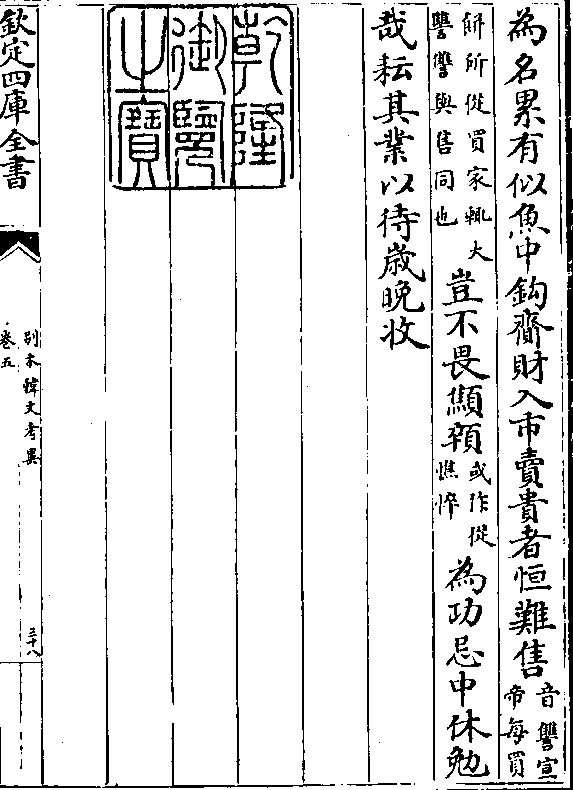 為名累有似魚中鈎齎財入市賣貴者恒難售音讐宣帝每買
餅所從買家輒大讐讐與售同也豈不畏顦顇或作從憔悴為功忌中休勉
哉耘其業以待歳晚收
乾隆
御覽
之寶
欽定四庫全書
別本韓文考異
卷五
三十八